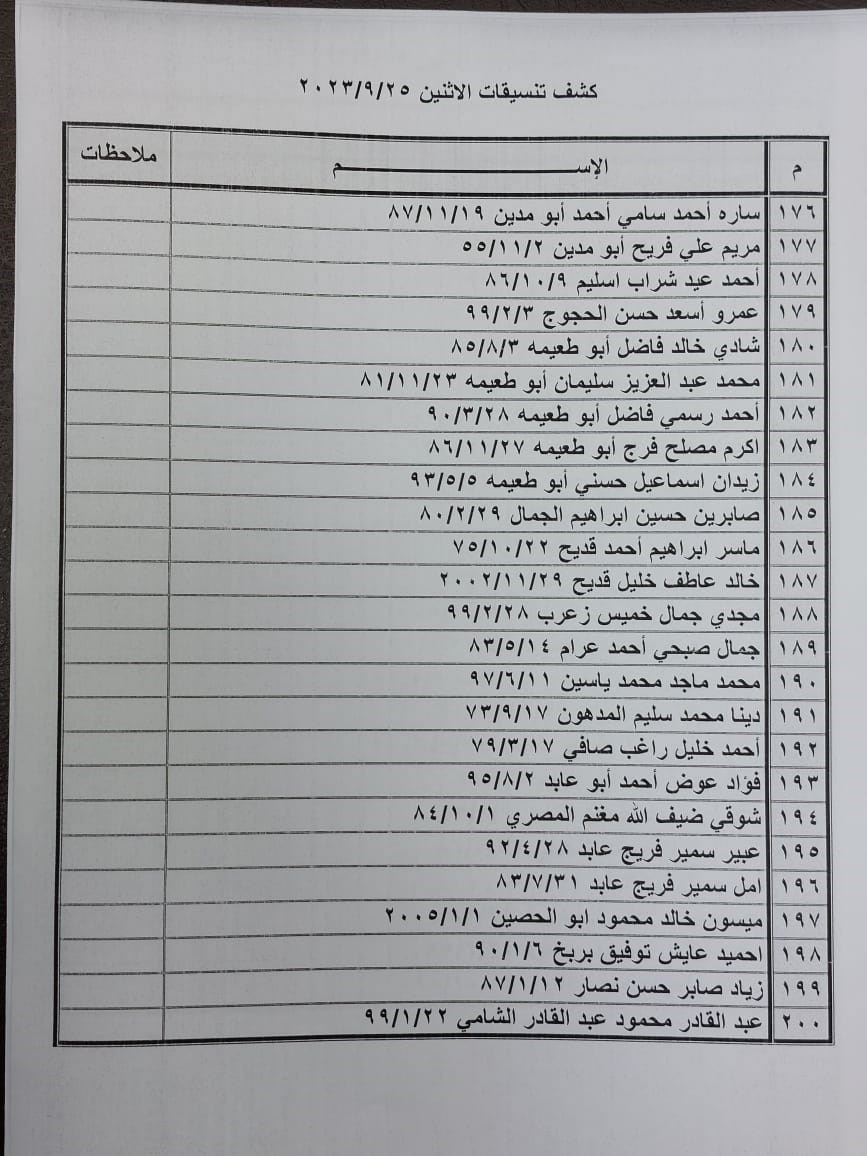 كشف تنسيقات الاثنين ٢٠٢٣/٩/٢٥
م الإســـــــم ملاحظات
١٧٦ ساره أحمد سامي أحمد أبو مدين ٨٧/١١/١٩
١٧٧ مريم علي فريح أبو مدين ٥٥/١١/٢
١٧٨ أحمد عيد شراب اسليم ٨٦/١٠/٩
١٧٩ عمرو أسعد حسن الحجوج ٩٩/٢/٣
١٨٠ شادي خالد فاضل أبو طعيمه ٨٥/٨/٣
١٨١ محمد عبد العزيز سليمان أبو طعيمه ٨١/١١/٢٣
١٨٢ أحمد رسمي فاضل أبو طعيمه ٩٠/٣/٢٨
١٨٣ اكرم مصلح فرج أبو طعيمه ٨٦/١١/٢٧
١٨٤ زيدان اسماعيل حسني أبو طعيمه ٩٣/٥/٥
١٨٥ صابرين حسين ابراهيم الجمال ٨٠/٢/٢٩
١٨٦ ماسر ابراهيم أحمد قديح ٧٥/١٠/٢٢
١٨٧ خالد عاطف خليل قديح ٢٠٠٢/١١/٢٩
١٨٨ مجدي جمال خميس زعرب ٩٩/٢/٢٨
١٨٩ جمال صبحي أحمد عرام ٨٣/٥/١٤
١٩٠ محمد ماجد محمد ياسين ٩٧/٦/١١
١٩١ دينا محمد سليم المدهون ٧٣/٩/١٧
١٩٢ أحمد خليل راغب صافي ٧٩/٣/١٧
١٩٣ فؤاد عوض أحمد أبو عابد ٩٥/٨/٢
١٩٤ شوقي ضيف الله مغنم المصري ٨٤/١٠/١
١٩٥ عبير سمير فريج عابد ٩٢/٤/٢٨
١٩٦ امل سمير فريج عابد ٨٣/٧/٣١
١٩٧ ميسون خالد محمود ابو الحصين ٢٠٠٥/١/١
١٩٨ احميد عايش توفيق بربخ ٩٠/١/٦
١٩٩ زياد صابر حسن نصار ٨٧/١/١٢
٢٠٠ عبد القادر محمود عبد القادر الشامي ٩٩/١/٢٢